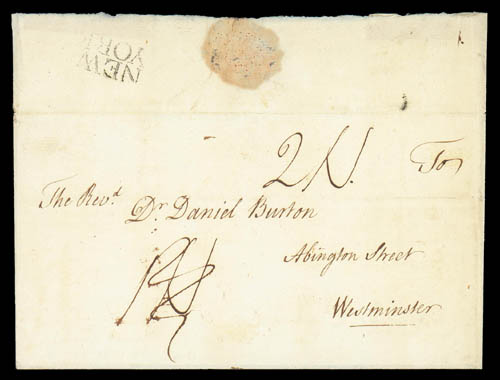 NEW
YORK
2N.
To
The Rev.d Dr. Daniel Burton
Abington Street
Westminster